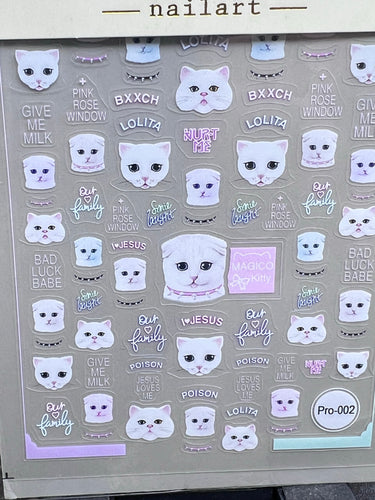 — nailart —
LOLITA
+
PINK
ROSE
WINDOW
BXXCH
BXXCH
+
PINK
ROSE
WINDOW
GIVE
ME
MILK
LOLITA
HURT
ME
LOLITA
GIVE
ME
MILK
Our
family
+
PINK
ROSE
WINDOW
+
PINK
ROSE
WINDOW
Our
family
I♥JESUS
BAD
LUCK
BABE
MAGICO
Kitty
BAD
LUCK
BABE
Our
family
I♥JESUS
Our
family
GIVE
ME
MILK
POISON
POISON
GIVE
ME
MILK
HURT
ME
JESUS
LOVES
ME
JESUS
LOVES
ME
POISON
Our
family
LOLITA
Pro-002